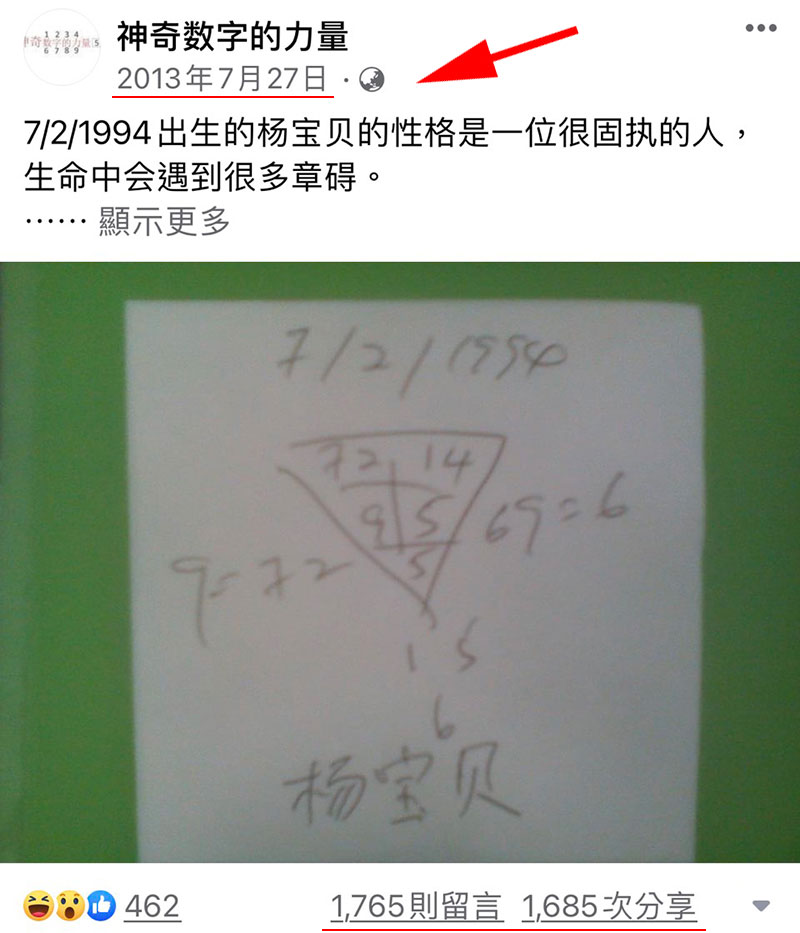 1 2 3 4
神奇数字的力量 5
6 7 8 9
神奇数字的力量
2013年7月27日 ·
7/2/1994出生的杨宝贝的性格是一位很固执的人，
生命中会遇到很多章碍。
…… 顯示更多
7/2/1994
72 14
9 5
69=6
9=72
5
1 5
6
杨宝贝
462
1,765則留言 1,685次分享